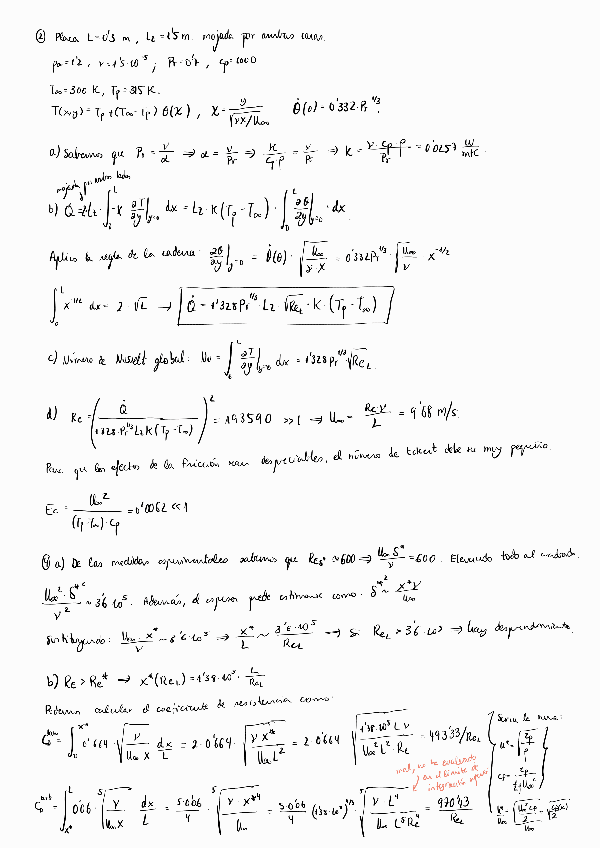 ② Placa L=0'3 m, L₂=1'5 m. mojada por ambas caras.
ρa=1'2, ν=1'5·10⁻⁵; Pr=0'7, cp=1000
T∞=300 K, Tp=315 K.
T(x,y)=Tp+(T∞-Tp) θ(X), X=y/√(νx/U∞) θ̇(0)=0'332·Pr^1/3
a) Sabemos que Pr=ν/α ⇒ α=ν/Pr ⇒ K/(Cp ρ)=ν/Pr ⇒ K=ν·cp·ρ/Pr=0'0257 W/mK.
mojada por ambos lados
b) Q̇=2L₂·∫₀^L -K ∂T/∂y|y=0 dx = L₂·K(Tp-T∞)·∫₀^L ∂θ/∂y|y=0 ·dx
Aplico la regla de la cadena: ∂θ/∂y|y=0 = θ̇(0)·√(U∞/(ν·x)) = 0'332Pr^1/3·√(U∞/ν) x^-1/2
∫₀^L x^-1/2 dx = 2·√L → Q̇=1'328Pr^1/3·L₂·√ReL·K·(Tp-T∞)
c) Número de Nusselt global: Nu=∫₀^L ∂T/∂y|y=0 dx = 1'328Pr^1/3√ReL
d) Re=(Q̇/(1'328·Pr^1/3 L₂K(Tp-T∞)))²=193590 >>1 ⇒ U∞=Re·ν/L = 9'68 m/s
Para que los efectos de la fricción sean despreciables, el número de Eckert debe ser muy pequeño.
Ec=U∞²/((Tp-T∞)·cp)=0'0062<<1
④ a) De las medidas experimentales sabemos que Reδ*~600 ⇒ U∞δ*/ν=600. Elevando todo al cuadrado
U∞²·δ*²/ν² ~ 3'6·10⁵. Además, el espesor puede estimarse como δ*² ~ x*ν/U∞
Sustituyendo: U∞·x*/ν ~ 3'6·10⁵ ⇒ x*/L ~ 3'6·10⁵/ReL → Si ReL>3'6·10⁵ → hay desprendimiento.
b) Re>Re* → x*(ReL)=1'38·10⁵·L/ReL
Podemos calcular el coeficiente de resistencia como:
C_D^lam=∫₀^x* 0'664·√(ν/(U∞x)) dx/L = 2·0'664·√(νx*/(U∞L²)) = 2·0'664 √(1'38·10⁵Lν/(U∞²L²·ReL)) = 493'33/ReL
mal, no he evaluado en el límite de integración
C_D^turb=∫x*^L 0'06 ⁵√(ν/(U∞x)) dx/L = 5·0'06/4 ⁵√(ν·x*⁴/U∞) = 5·0'06/4 (1'38·10⁵)^4/5 ⁵√(νL⁴/(U∞L⁵Re⁴)) = 970'43/ReL
Sería la suma:
u*=√(τp/ρ)
cf=τp/(½ρU∞²)
u*/U∞=√(U∞²cf/2)/U∞=√(cf(x)/2)